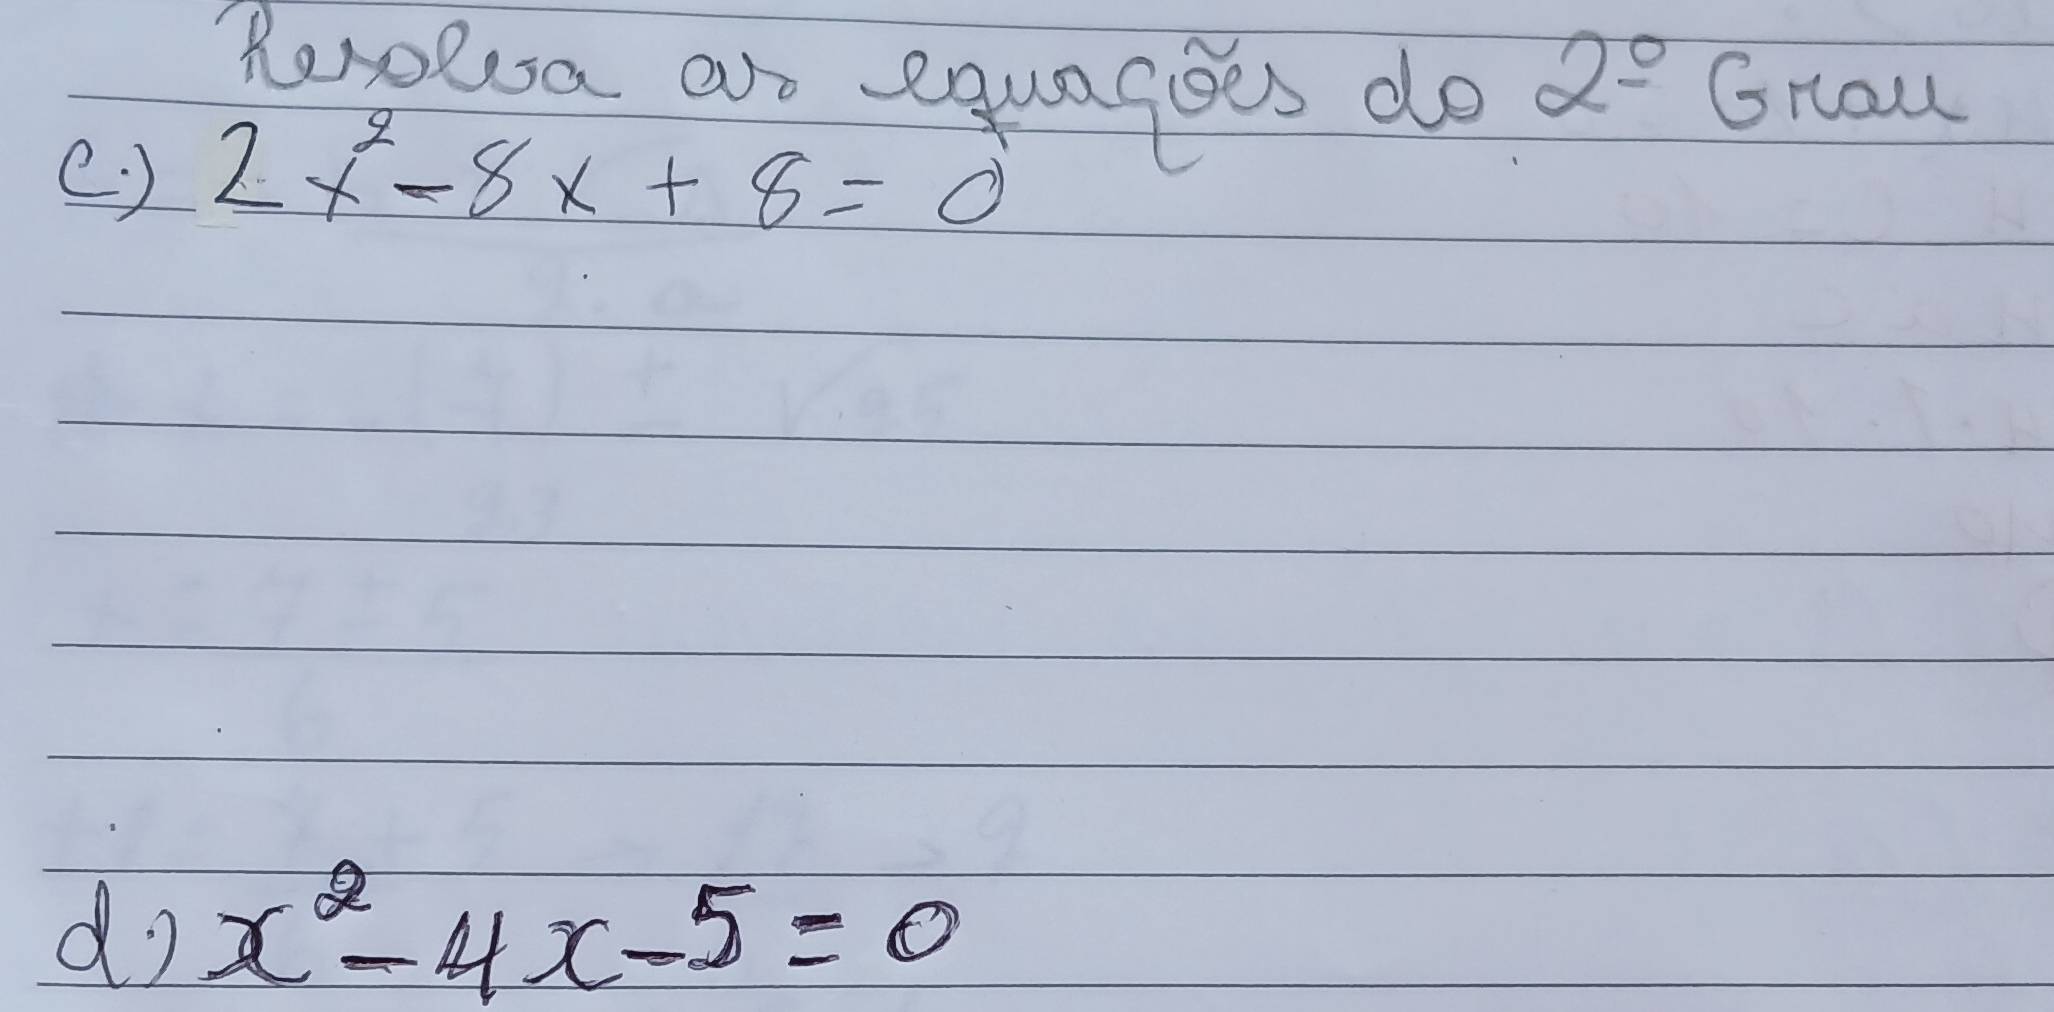 Resolva as equações do 2º Grau
c.) 2x² - 8x + 8 = 0
d.) x² - 4x - 5 = 0